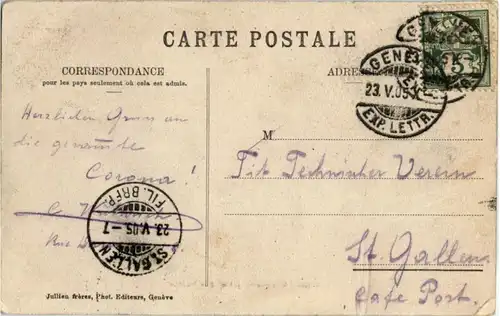 CARTE POSTALE
CORRESPONDANCE
pour les pays seulement où cela est admis.
ADRES
GENÈ
23. V. 05
EXP. LETTR.
5
Herzlichen Gruss an
die gesamte
Corona!
M
Tit Technischer Verein
St. Gallen
Café Post.
ST. GALLEN
23. V. 05.-7
FIL. BRFP.
Jullien frères, Phot. Editeurs, Genève